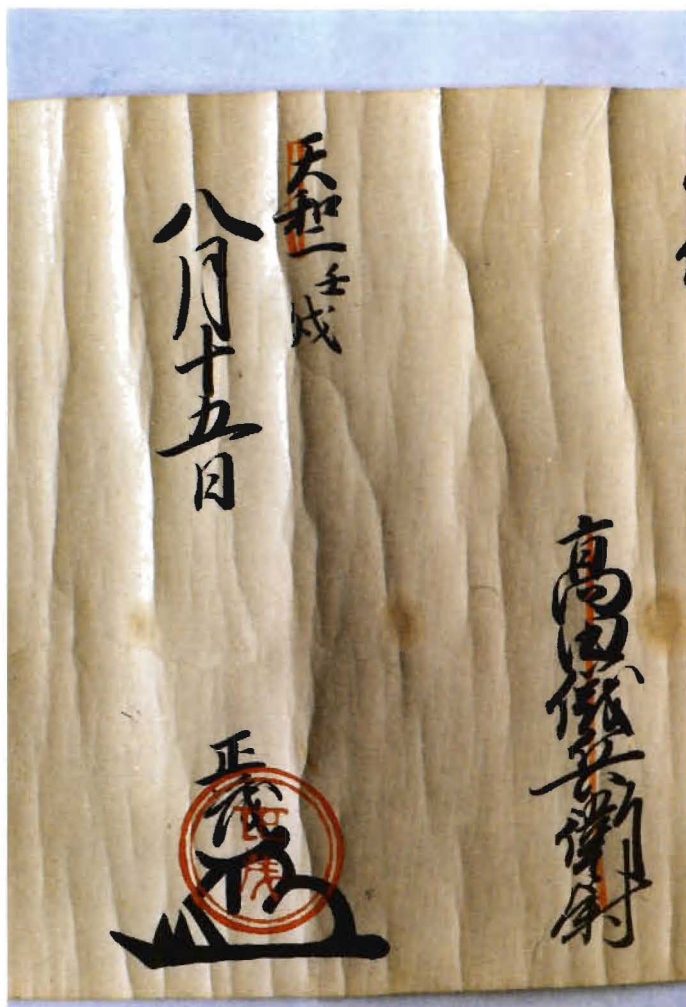 高田儀兵衛尉
天和二壬戌
八月十五日
正